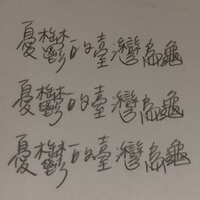 憂鬱的臺灣烏龜
憂鬱的臺灣烏龜
憂鬱的臺灣烏龜